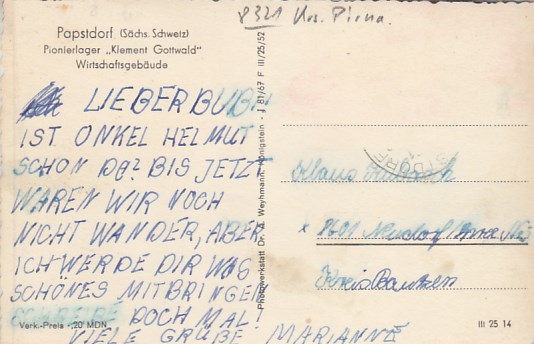 8321 Krs. Pirna.
Papstdorf (Sächs. Schweiz)
Pionierlager „Klement Gottwald"
Wirtschaftsgebäude
LIEBER BUBI
IST ONKEL HELMUT
SCHON DA? BIS JETZT
WAREN WIR NOCH
NICHT WANDER, ABER
ICH WERDE DIR WAS
SCHÖNES MITBRINGEN
SCHREIBE DOCH MAL!
VIELE GRÜßE MARIANNE
Verk.-Preis -,20 MDN
Photowerkstatt Dr. A. Weyhmann, Königstein - J 81/67 F III/25/52
Klaus
x 8601
Kreis Bautzen
III 25 14